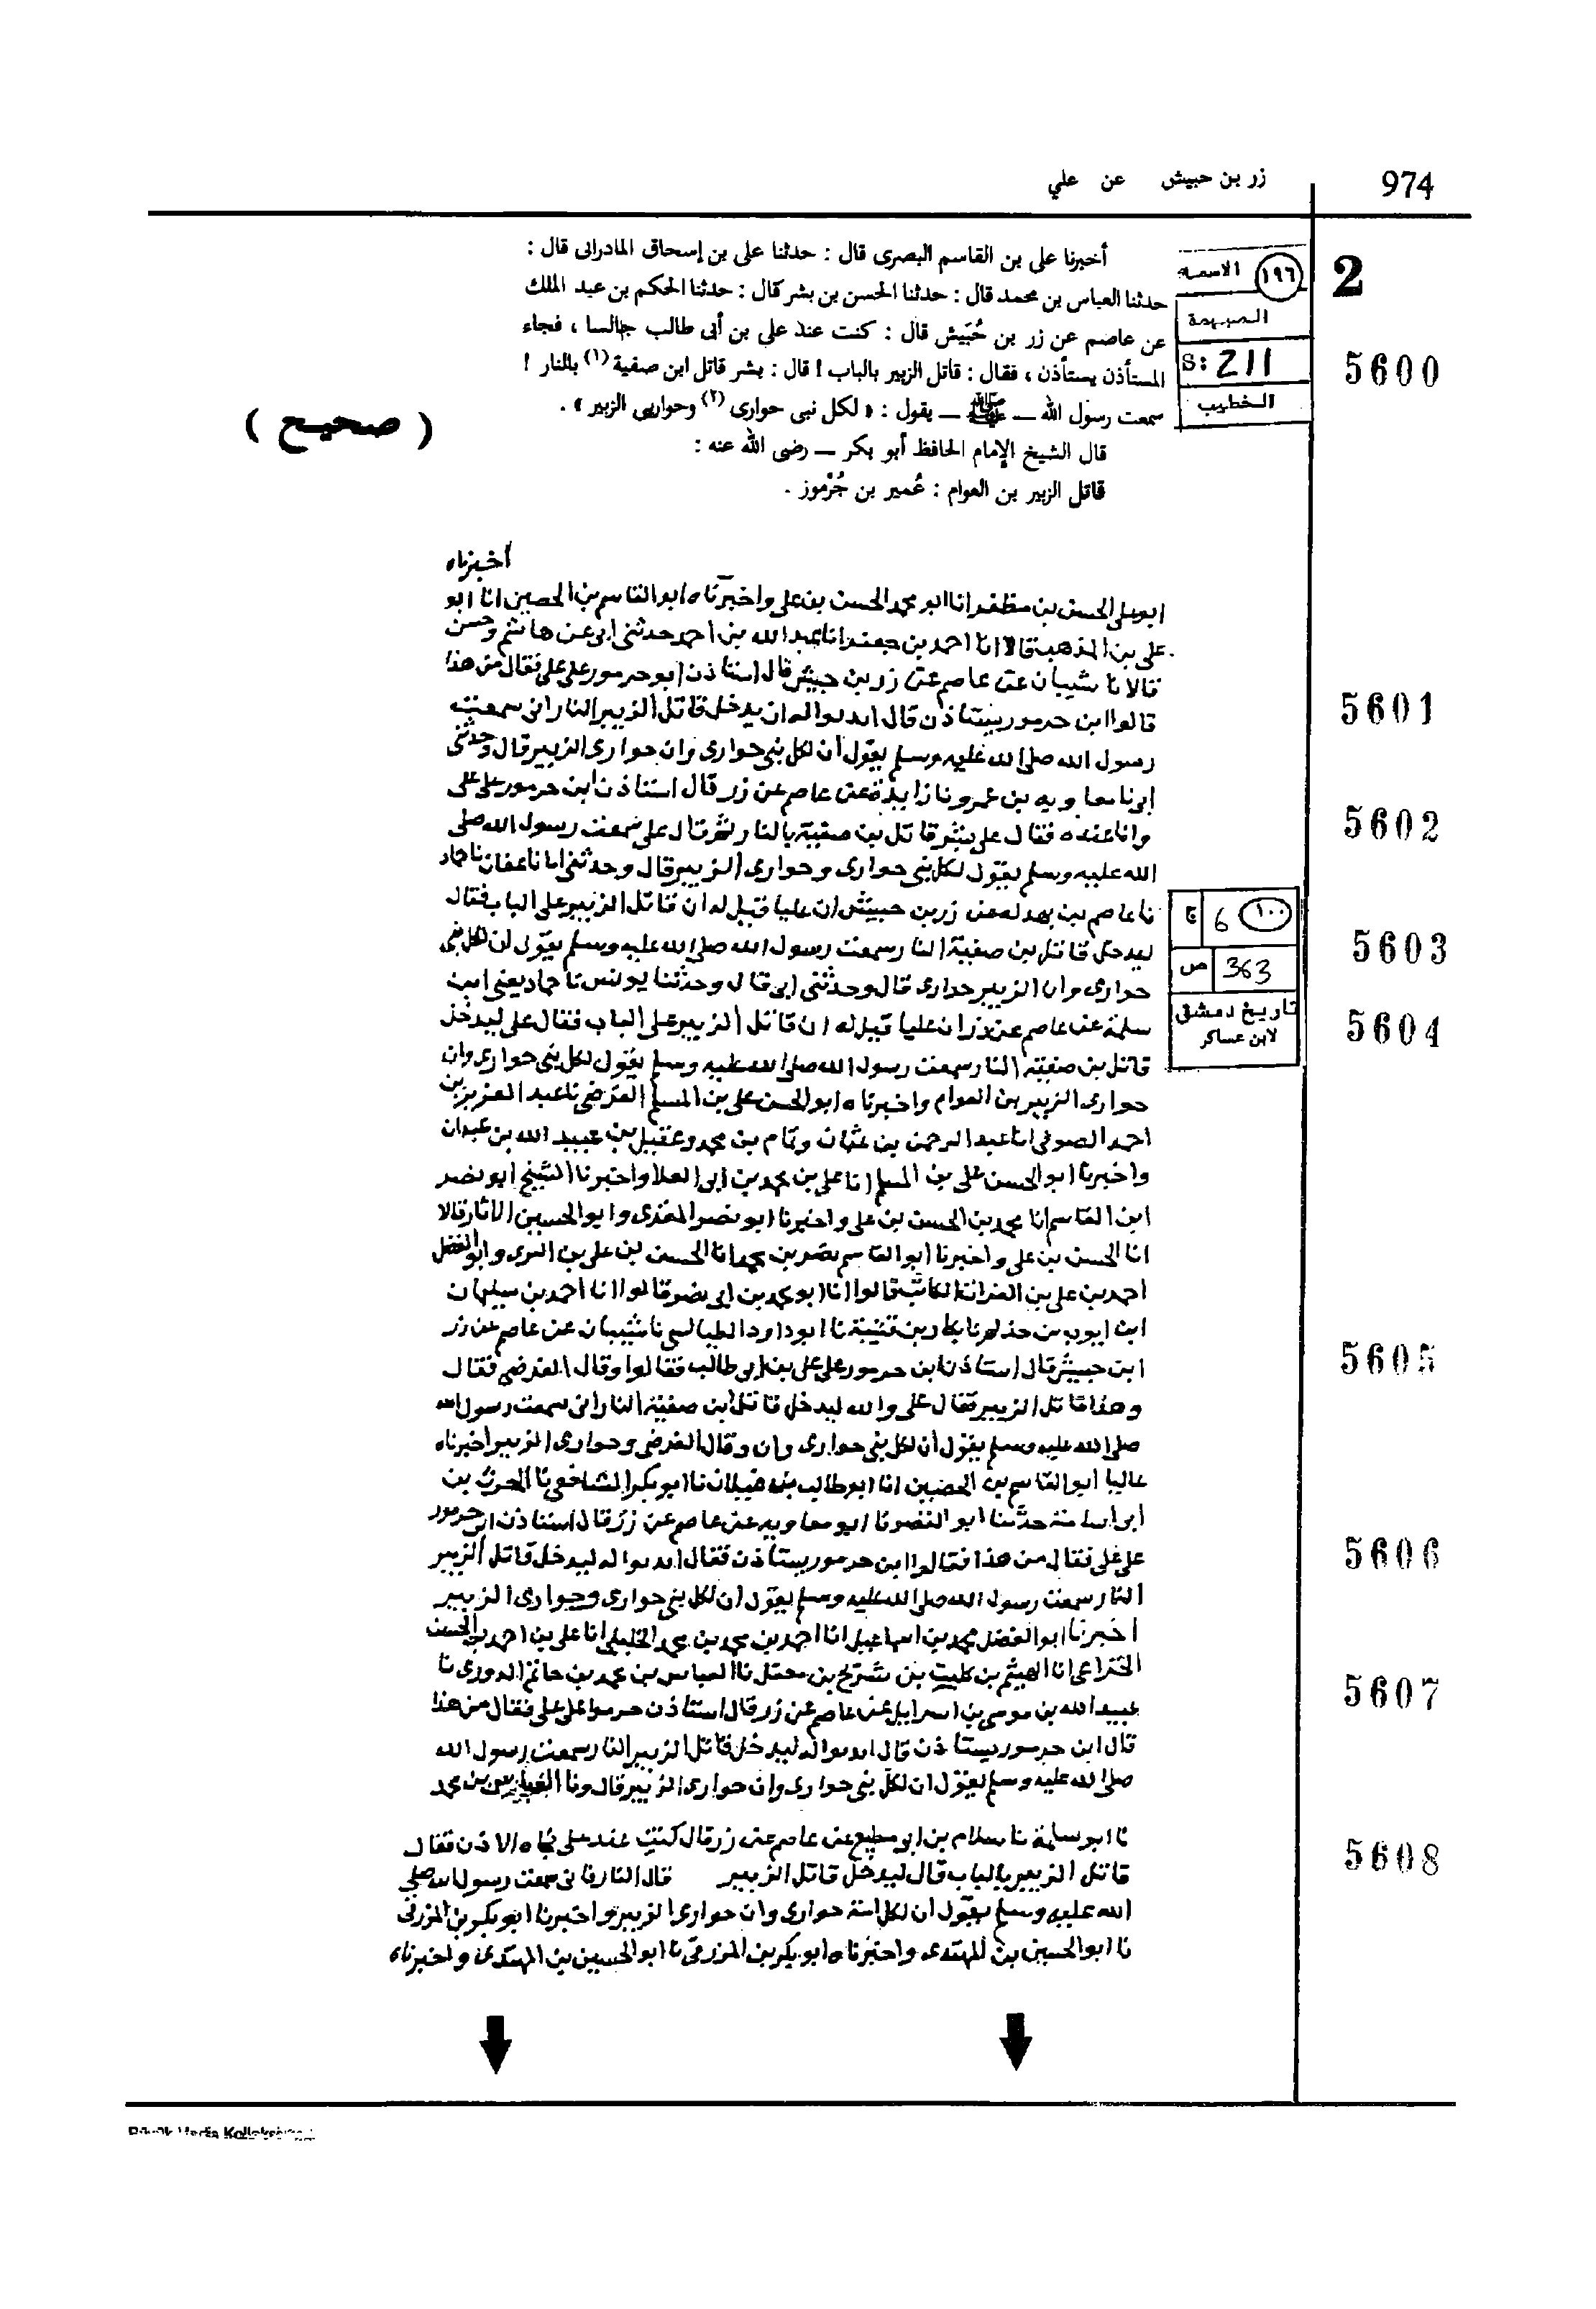 974
زر بن حبيش عن علي
2
١٩٦ الاسمـاء
المبهمة
S: 211
الخطيب
5600
أخبرنا على بن القاسم البصرى قال : حدثنا على بن إسحاق المادرانى قال :
حدثنا العباس بن محمد قال : حدثنا الحسن بن بشر قال : حدثنا الحكم بن عبد الملك
عن عاصم عن زر بن حُبَيش قال : كنت عند على بن أبى طالب جالسا ، فجاء
المستأذن يستأذن ، فقال : قاتل الزبير بالباب ! قال : بشر قاتل ابن صفية (١) بالنار !
سمعت رسول الله — ﷺ — يقول : « لكل نبى حوارى (٢) وحواريى الزبير » .
( صحيح )
قال الشيخ الإمام الحافظ أبو بكر — رضى الله عنه :
قاتل الزبير بن العوام : عُمير بن جُرْموز .
اخبرناه
ابوعلى الحسن بن مظفر انا ابو محمد الحسن بن على واخبرناه ابو القاسم بن الحصين انا ابو
على بن المذهب قالا انا احمد بن جعفر انا عبد الله بن احمد حدثنى ابى عن هاشم وحسن
قالا نا شيبان عن عاصم عن زر بن حبيش قال استاذن ابو جرموز على على فقال من هذا
5601
قالوا ابن جرموز يستاذن قال ايذنوا له ان يدخل قاتل الزبير النار انى سمعت
رسول الله صلى الله عليه وسلم يقول ان لكل نبى حوارى وان حوارى الزبير قال وحدثنى
ابى نا معاويه بن عمرو نا زايدة عن عاصم عن زر قال استاذن ابن جرموز على على
5602
وانا عنده فقال على بشر قاتل بن صفية بالنار ثم قال على سمعت رسول الله صلى
الله عليه وسلم يقول لكل نبى حوارى وحوارى الزبير قال وحدثنى ابى نا عفان نا حماد
نا عاصم بن بهدله عن زر بن حبيش ان عليا قيل له ان قاتل الزبير على الباب فقال
١٠٠ 6 ج
363 ص
تاريخ دمشق
لابن عساكر
5603
ليدخل قاتل بن صفية النار سمعت رسول الله صلى الله عليه وسلم يقول ان لكل نبى
حوارى وان الزبير حوارى قال وحدثنى ابى قال وحدثنا يونس نا حماد يعنى ابن
5604
سلمة عن عاصم عن زر ان عليا قيل له ان قاتل الزبير على الباب فقال على ليدخل
قاتل بن صفية النار سمعت رسول الله صلى الله عليه وسلم يقول لكل نبى حوارى وان
حوارى الزبير بن العوام واخبرناه ابو الحسن على بن المسلم الفرضى نا عبد العزيز بن
احمد الصوفى انا عبد الرحمن بن عثمان وتمام بن محمد وعقيل بن عبيد الله بن عبدان
واخبرنا ابو الحسن على بن المسلم انا على بن محمد بن ابى العلا واخبرنا الشيخ ابو نصر
ابن القاسم انا محمد بن الحسن بن على واخبرنا ابو نصر وابو الحسين قالا
انا الحسن بن على واخبرنا ابو القاسم نصر بن محمد انا الحسن بن على بن البرى وابو الفضل
احمد بن على بن الفرات قالوا انا ابو محمد بن ابى نصر قالوا انا احمد بن سليمان
ابن ايوب بن حذلم نا بكار بن قتيبة نا ابو داود الطيالسى نا شيبان عن عاصم عن زر
5605
ابن حبيش قال استاذن ابن جرموز على على بن ابى طالب فقالوا وقال الفرضى فقال
وهذا قاتل الزبير فقال على والله ليدخل قاتل ابن صفية النار انى سمعت رسول الله
صلى الله عليه وسلم يقول ان لكل نبى حوارى وان وقال الفرضى وحوارى الزبير اخبرناه
عاليا ابو القاسم بن الحصين انا ابو طالب بن غيلان نا ابو بكر الشافعى نا الحرث بن
ابى اسامة حدثنا ابو النضر نا ابو معاويه عن عاصم عن زر قال استاذن ابن جرموز
5606
على على فقال من هذا فقالوا ابن جرموز يستاذن فقال ايذنوا له ليدخل قاتل الزبير
النار سمعت رسول الله صلى الله عليه وسلم يقول ان لكل نبى حوارى وحوارى الزبير
اخبرنا ابو الفضل محمد بن اسماعيل انا احمد بن محمد بن محمد الخليلى انا على بن احمد بن الحسن
الخزاعى انا الهيثم بن كليب بن شريح بن معقل نا العباس بن محمد بن حاتم الدورى نا
5607
عبيد الله بن موسى بن اسرايل عن عاصم عن زر قال استاذن جرموز على على فقال من هذا
قال ابن جرموز يستاذن قال ايذنوا له ليدخل قاتل الزبير النار سمعت رسول الله
صلى الله عليه وسلم يقول ان لكل نبى حوارى وان حوارى الزبير قال ونا العباس بن محمد
نا ابو سلمة نا سلام بن ابو مطيع عن عاصم عن زر قال كنت عند على فجاه الاذن فقال
5608
قاتل الزبير بالباب قال ليدخل قاتل الزبير قال النار فانى سمعت رسول الله صلى
الله عليه وسلم يقول ان لكل امة حوارى وان حوارى الزبير واخبرنا ابو بكر بن المزرفى
نا ابو الحسين بن المهتدى واخبرناه ابو بكر بن المزرفى نا ابو الحسين بن المهتدى واخبرناه